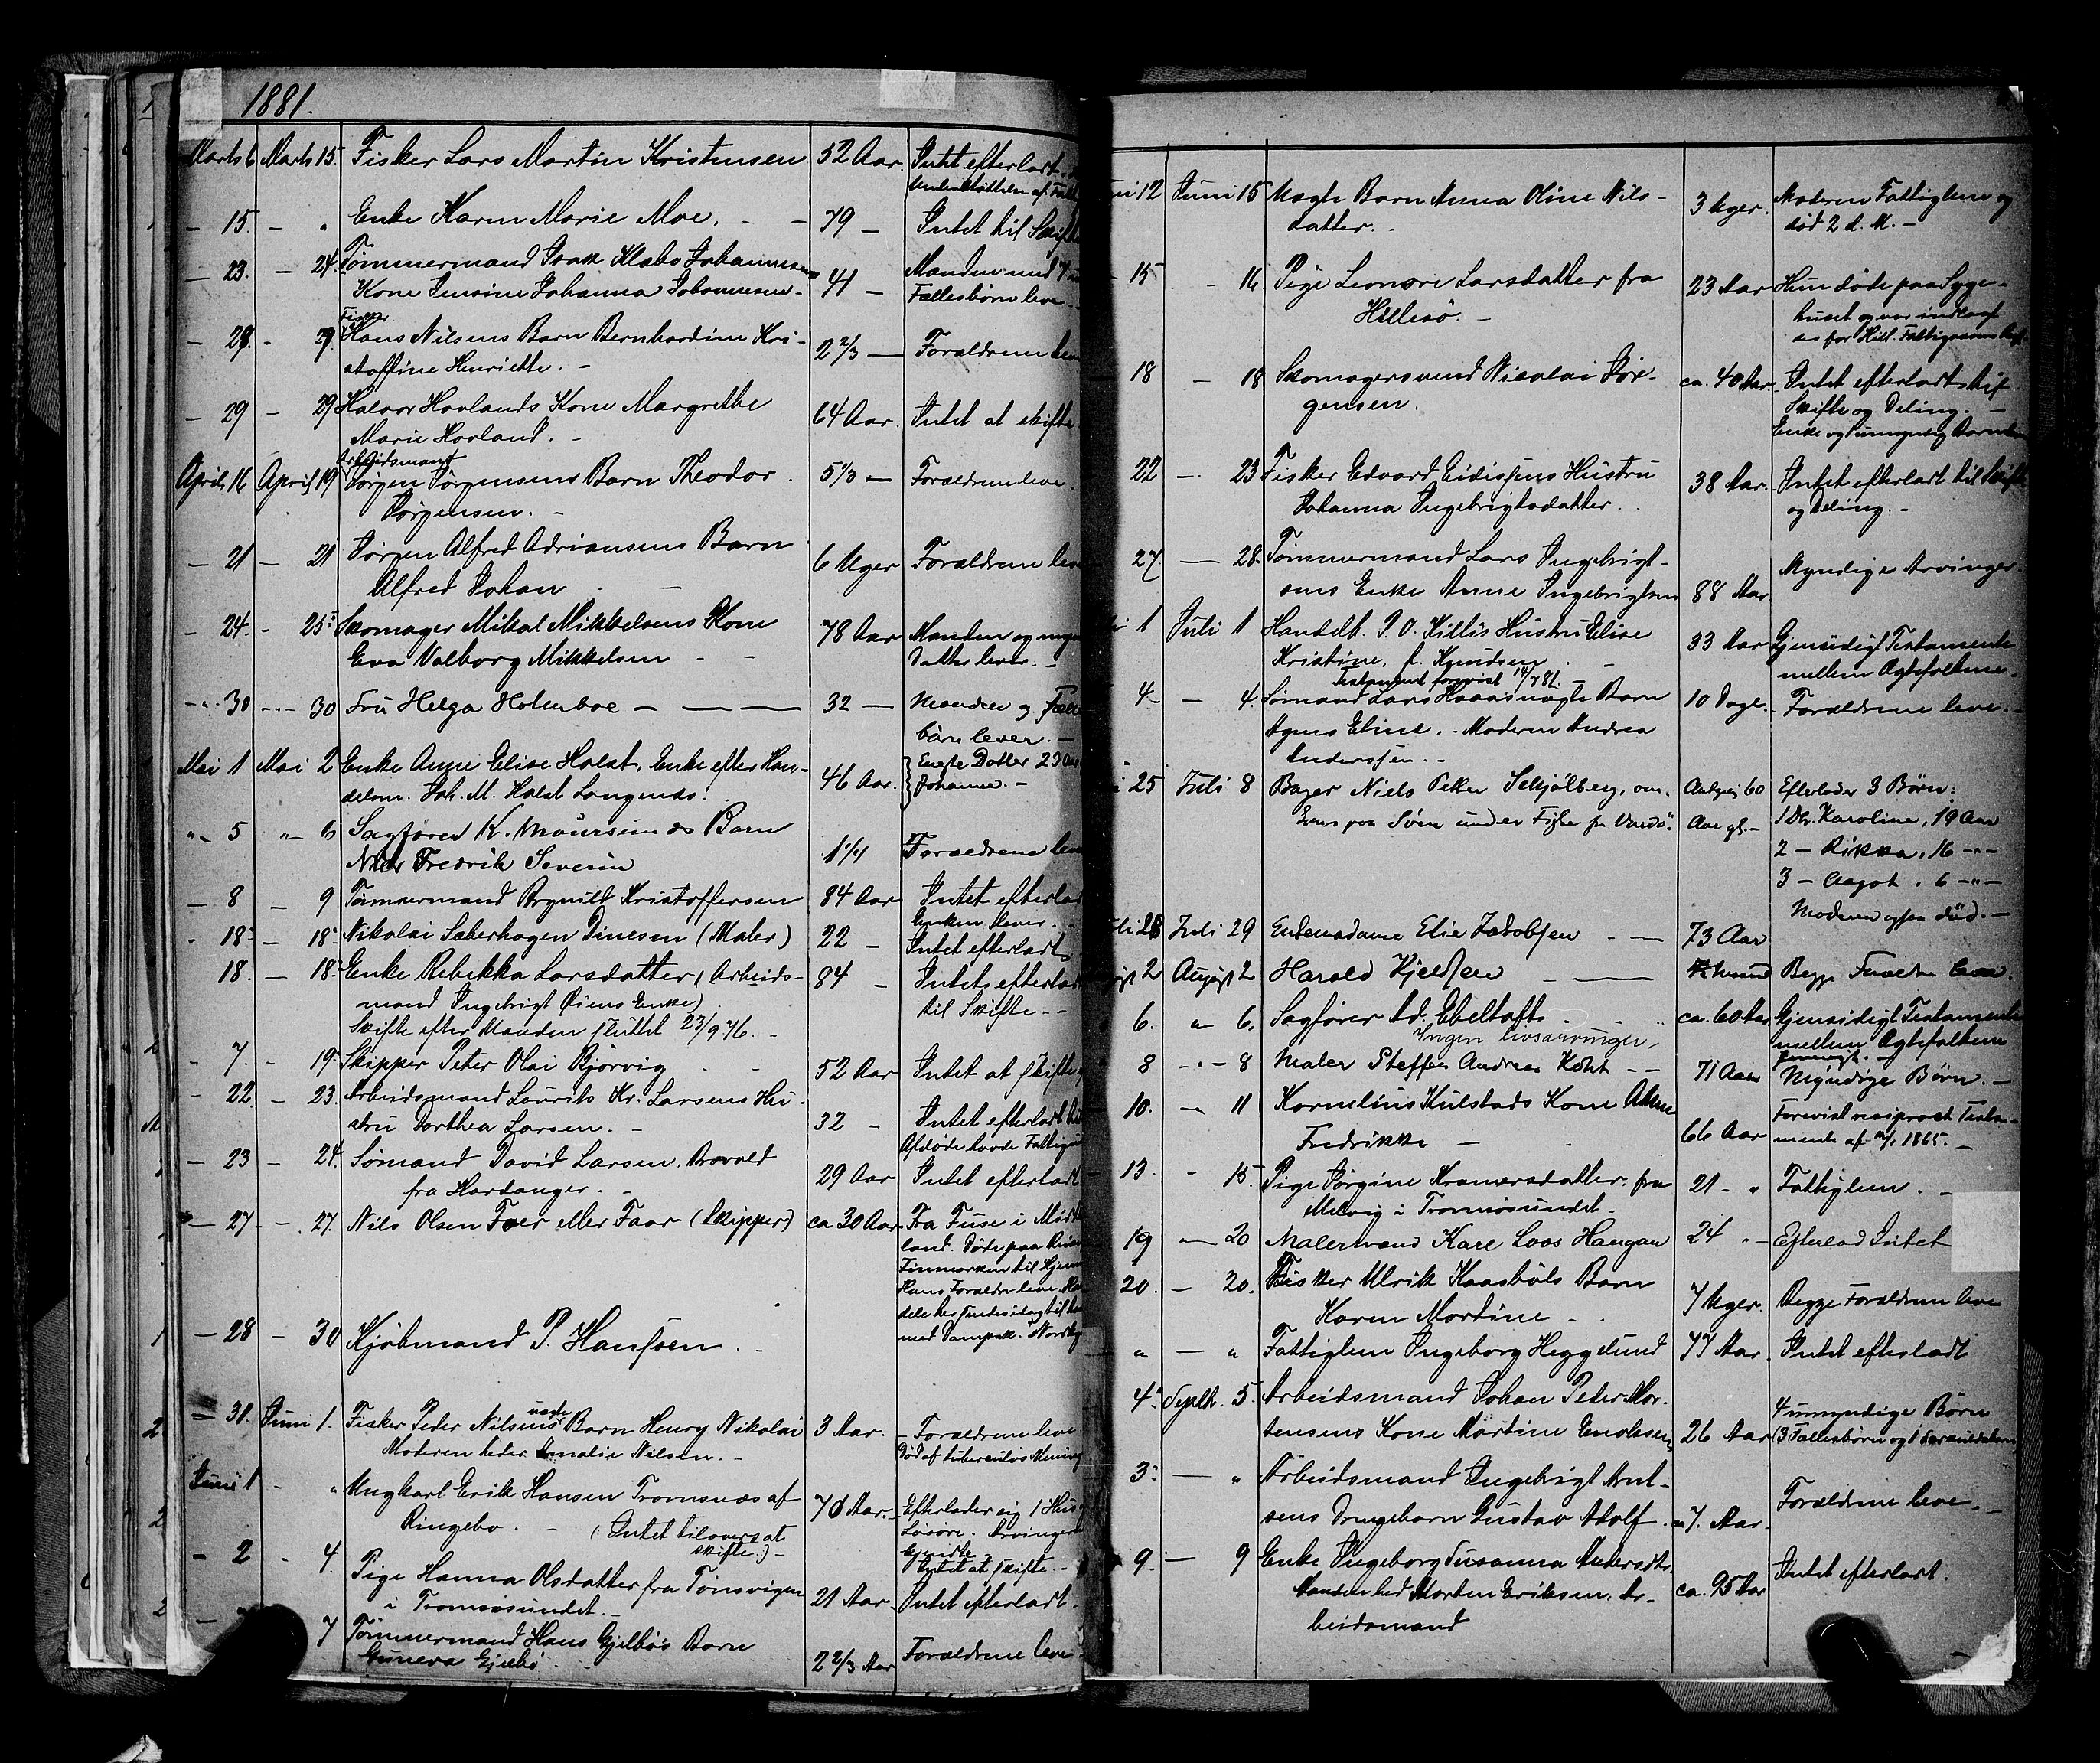 1881.
Marts 6 Marts 15. Fisker Lars Martin Kristensen 52 Aar. Intet efterladt.
Understøttelse af
- 15. - " Enke Karen Marie Moe. - - 79 - Intet til Skifte
- 23. - 24. Tømmermand Isak Klæbo Johannesens
Kone Jensine Johanna Johannesen. 41 - Manden med 4
Fællesbørn leve.
Fisker
- 28. - 29. Hans Nilsens Barn Bernhardine Kri-
stoffine Henriette. - 2 2/3 - Forældrene leve
- 29 - 29 Halvor Hovlands Kone Margrethe
Marie Hovland. - 64 Aar. Intet at skifte.
Arbeidsmand
April 16 April 19 Jørgen Jørgensens Barn Theodor
Jørgensen. - 5 1/3 - Forældrene leve.
- 21 - 21 Jørgen Alfred Adriansens Barn
Alfred Johan - 6 Uger Forældrene leve
- 24. - 25. Skomager Mikal Mikkelsens Kone
Eva Valborg Mikkelsen - - 78 Aar Manden og
Datter lever. -
- 30 - 30 Fru Helga Holmboe - - 32 - Manden og
børn lever. -
Mai 1 Mai 2 Enke Anne Elise Holst, Enke efter Han-
delsm. Joh. M. Holst Langnes. 46 Aar. Eneste Datter 23 Aar
Johanna. -
" 5 " 6 Sagfører K. Moursunds Barn
Niels Fredrik Severin 1 1/4 Forældrene leve
- 8 - 9 Tømmermand Brynild Kristoffersen 84 Aar Intet efterladt
Enken lever.
- 18 - 18 Nikolai Sæberhagen Dinesen (Maler) 22 - Intet efterladt
18. - 18. Enke Rebekka Larsdatter (Arbeids-
mand Ingebrigt Øiens Enke) 84 - Intet efterladt
til Skifte - -
Skifte efter Manden sluttet 23/9 76. -
- 7. - 19. Skipper Peter Olai Bjørvig - 52 Aar Intet at skifte
- 22. - 23. Arbeidsmand Lourits Kr. Larsens Hu-
stru Dorthea Larsen. - 32 - Intet efterladt
Afdøde havde
- 23 - 24. Sømand David Larsen
fra Hardanger. - 29 Aar Intet efterladt
- 27 - 27. Nils Olsen Foer eller Faar (Skipper) ca 30 Aar Fra Fuse i
land. Døde paa
Finmarken til Hjem
Hans Forældre leve.
med Dampsk.
- 28 - 30 Kjøbmand P. Hanssen. -
- 31. Juni 1. Fisker Peder Nilsens uægte Barn Henry Nikolai 3 Aar. - Forældrene leve
Moderen heder Amalie Nilsen. - Død af tuberculøs
Juni 1 - " Ungkarl Erik Hansen Tromsnæs af
Ringebo. - (Intet tilovers at
skifte.) - 70 Aar. - Efterlader sig 1 Hus
Løsøre. Arvinger
Intet at skifte. -
- 2 - 4. Pige Hanna Olsdatter fra Tønsvigen
i Tromsøsundet. - 21 Aar. Intet efterladt.
7 Tømmermand Hans Gjelbøs Barn
Gjelbø 2 2/3 Aar Forældrene leve.
12 Juni 15 Uægte Barn Anna Oline Nils-
datter. - 3 Uger. Moderen Fattiglem og
død 2 d. M. -
15 - 16 Pige Leonore Larsdatter fra
Hillesø. - 23 Aar Hun døde paa Syge-
huset og var indlagt
18 - 18 Skomagersvend Nicolai Jør-
gensen. ca. 40 Aar. Intet efterladt til
Skifte og Deling. -
22 - 23 Fisker Edvard Eidissens Hustru
Johanna Ingebrigtsdatter. 38 Aar. Intet efterladt til Skifte
og Deling. -
27. - 28. Tømmermand Lars Ingebrigt-
sens Enke Anne Ingebrigtsen 88 Aar. Myndige Arvinger.
1 Juli 1 Handelb. P. O. Killis Hustru Elise
Kristine, f. Knudsen 33 Aar Gjensidigt Testamente
mellem Ægtefolkene.
Testament forevist 14/7 81. -
4 - 4. Sømand Lars Haaas uægte Barn
Agnes Eline. - Moderen Andrea
Anderssen. - 10 Dage. Forældrene leve. -
25 Juli 8 Bager Niels Peter Schjølberg, om-
kom paa Søen under Fiske fra Vardø. 60 Aar gl. - Efterlader 3 Børn:
1 Karoline, 19 Aar
2 - Rikka, 16 - " -
3 - Aagot, 6 - " -
Moderen ogsaa død. -
28 Juli 29 Enkemadame Elie Jakobsen - - 73 Aar
2 August 2 Harald Kjeldsen - Begge Forældre leve
6. " 6. Sagfører Ad. Ebeltoft - ca. 60 Aar Gjensidigt Testamente
mellem Ægtefolkene
Ingen livsarvinger forevist. -
8 - " - 8 Maler Steffen Andreas Koht - - 71 Aar Myndige Børn. -
10. - 11 Kornelius Kulstads Kone
Fredrikke - 66 Aar Forevist reciprock Testa-
mente af 1865. -
13. - 15. Pige Jørgine Kramersdatter fra
Melvig i Tromsøsundet. - 21 - " Fattiglem. -
19 - 20 Malersvend Karl Loos Haugan 24 " - Efterlod Intet
20. - 20. Fisker Ulrik Kaasbøls Barn
Karen Martine - 7 Uger. Begge Forældrene leve
" - " Fattiglem Ingeborg Heggelund 77 Aar. Intet efterladt
4. Septbr. 5. Arbeidsmand Johan Peter Mor-
tensens Kone Martine Enoksen 26 Aar 4 umyndige Børn
(3 Fællesbørn og 1
3. - " Arbeidsmand Ingebrigt Arnt-
sens Drengebarn Gustav Adolf 7. Aar. Forældrene leve. -
9. - 9 Enke Ingeborg Susanna Andersdtr.
Manden hed Morten Eriksen, Ar-
beidsmand ca. 95 Aar Intet efterladt.